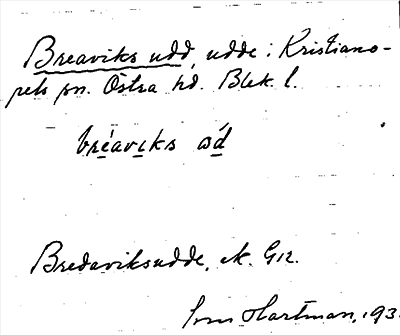 Breaviks udd, udde i Kristiano-
pels sn. Östra hd. Blek. l.
bréaviks ud
Bredaviksudde, ek. G12.
Sven Hartman, 193